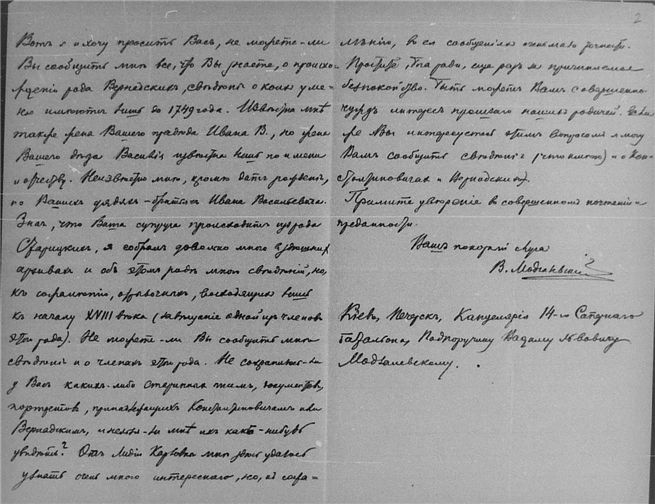 2
Вотъ я и хочу просить Васъ, не можете-ли
Вы сообщить мнѣ все, что Вы знаете, о проис-
хожденіи рода Вернадскихъ, свѣдѣнія о коихъ у ме-
ня имѣются лишь до 1749 года. Извѣстна мнѣ
также жена Вашего прадѣда Ивана В., но жена
Вашего дѣда Василія извѣстна лишь по имени
и отчеству. Неизвѣстны мнѣ, кромѣ датъ рожденій,
и Вашихъ дядяхъ - братьяхъ Ивана Васильевича.
Зная, что Ваша супруга происходитъ изъ рода
Старицкихъ, я собралъ довольно много въ здѣшнихъ
архивахъ и объ этомъ родѣ много свѣдѣній, но,
къ сожалѣнію, отрывочныхъ, восходящихъ лишь
къ началу XVIII вѣка (завѣщаніе одной изъ членовъ
этого рода). Не можете-ли Вы сообщить мнѣ
свѣдѣнія о членахъ этого рода. Не сохранились-ли
у Васъ какихъ-либо старинныхъ писемъ, документовъ,
портретовъ, принадлежащихъ Константиновичамъ или
Вернадскимъ, и нельзя-ли мнѣ ихъ какъ-нибудь
увидѣть? Отъ Лидіи Карловны мнѣ удалось
узнать очень много интереснаго, но, къ сожа-
лѣнію, въ ея сообщеніяхъ очень мало точности.
Простите, Бога ради, еще разъ за причиняемое
безпокойство. Быть можетъ Вамъ совершенно
чуждъ интересъ прошлаго нашихъ родичей. Если
же Вы интересуетесь этимъ вопросомъ я могу
Вамъ сообщить свѣдѣнія (что имѣю) и о Кон-
стантиновичахъ и Вернадскихъ.
Примите увѣреніе въ совершенномъ почтеніи и
преданности.
Вашъ покорный слуга
В. Модзалевскій
Кіевъ, Печерскъ, Канцелярія 14-го Сапернаго
баталіона, Подпоручику Вадиму Львовичу
Модзалевскому.